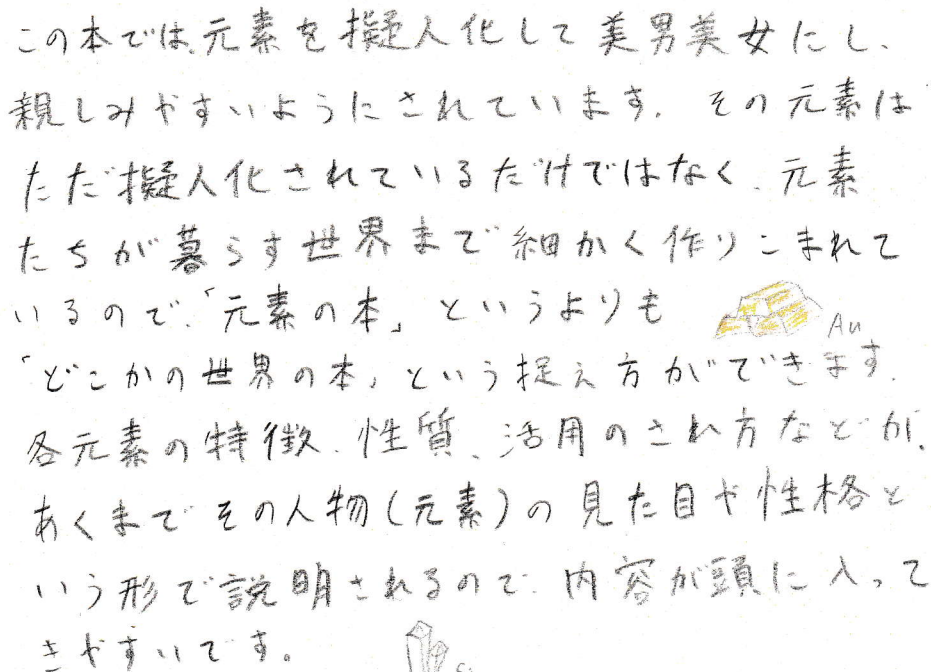 この本では、元素を擬人化して美男美女にし、
親しみやすいようにされています。その元素は
ただ擬人化されているだけではなく、元素
たちが暮らす世界まで細かく作りこまれて
いるので、「元素の本」というよりも
Au
「どこかの世界の本」という捉え方ができます。
各元素の特徴、性質、活用のされ方などが、
あくまでその人物(元素)の見た目や性格と
いう形で説明されるので、内容が頭に入って
きやすいです。